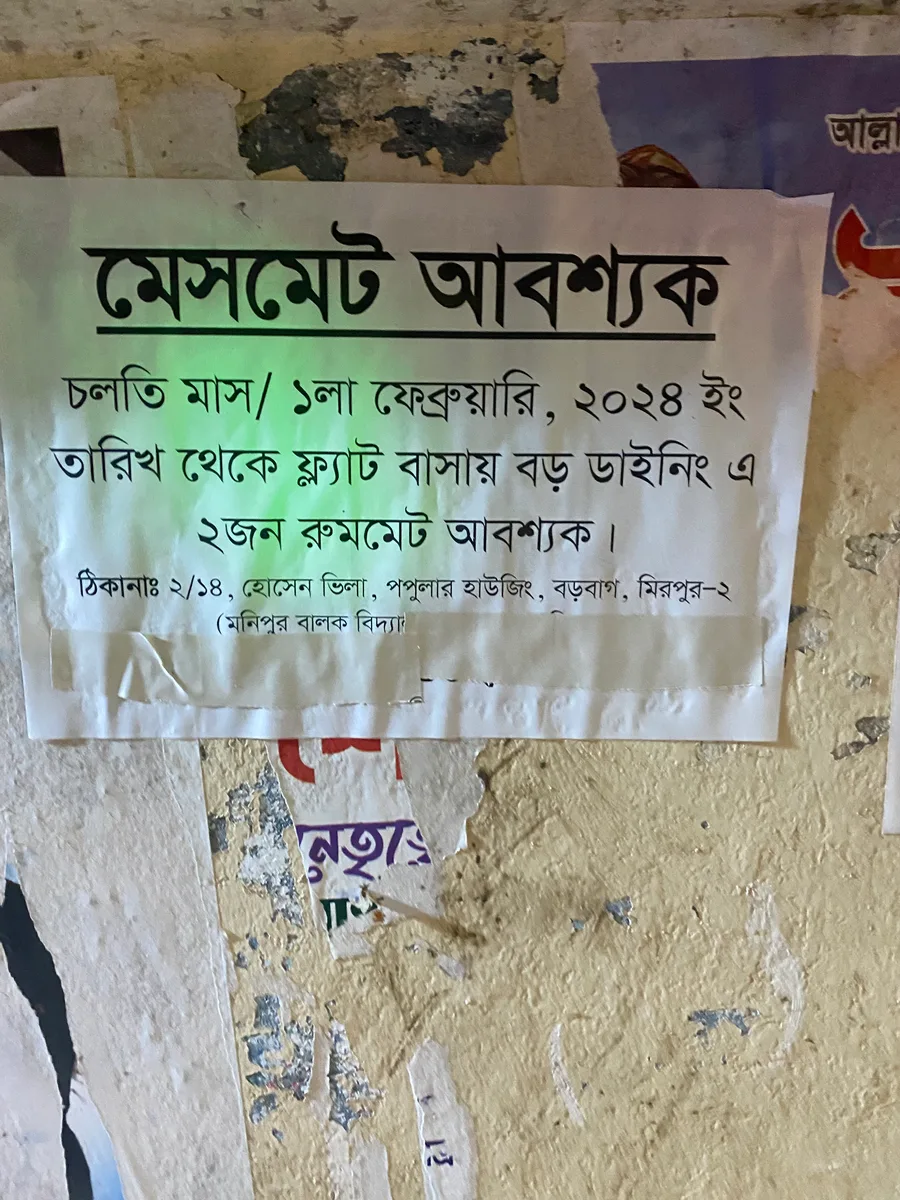 আল্লা
মেসমেট আবশ্যক
চলতি মাস/ ১লা ফেব্রুয়ারি, ২০২৪ ইং
তারিখ থেকে ফ্ল্যাট বাসায় বড় ডাইনিং এ
২জন রুমমেট আবশ্যক।
ঠিকানাঃ ২/১৪, হোসেন ভিলা, পপুলার হাউজিং, বড়বাগ, মিরপুর-২
(মনিপুর বালক বিদ্যা
নেতৃত্বে